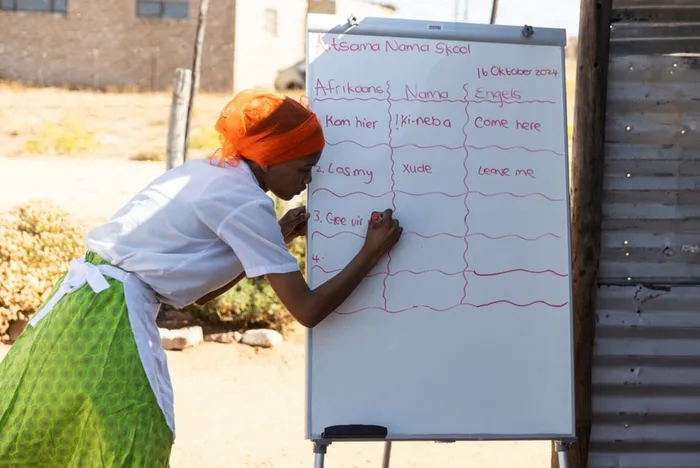 Kitsama Nama Skool
16 Oktober 2024
Afrikaans Nama Engels
Kom hier !Ki-neba Come here
2. Los my Xude Leave me
3. Gee vir
4.